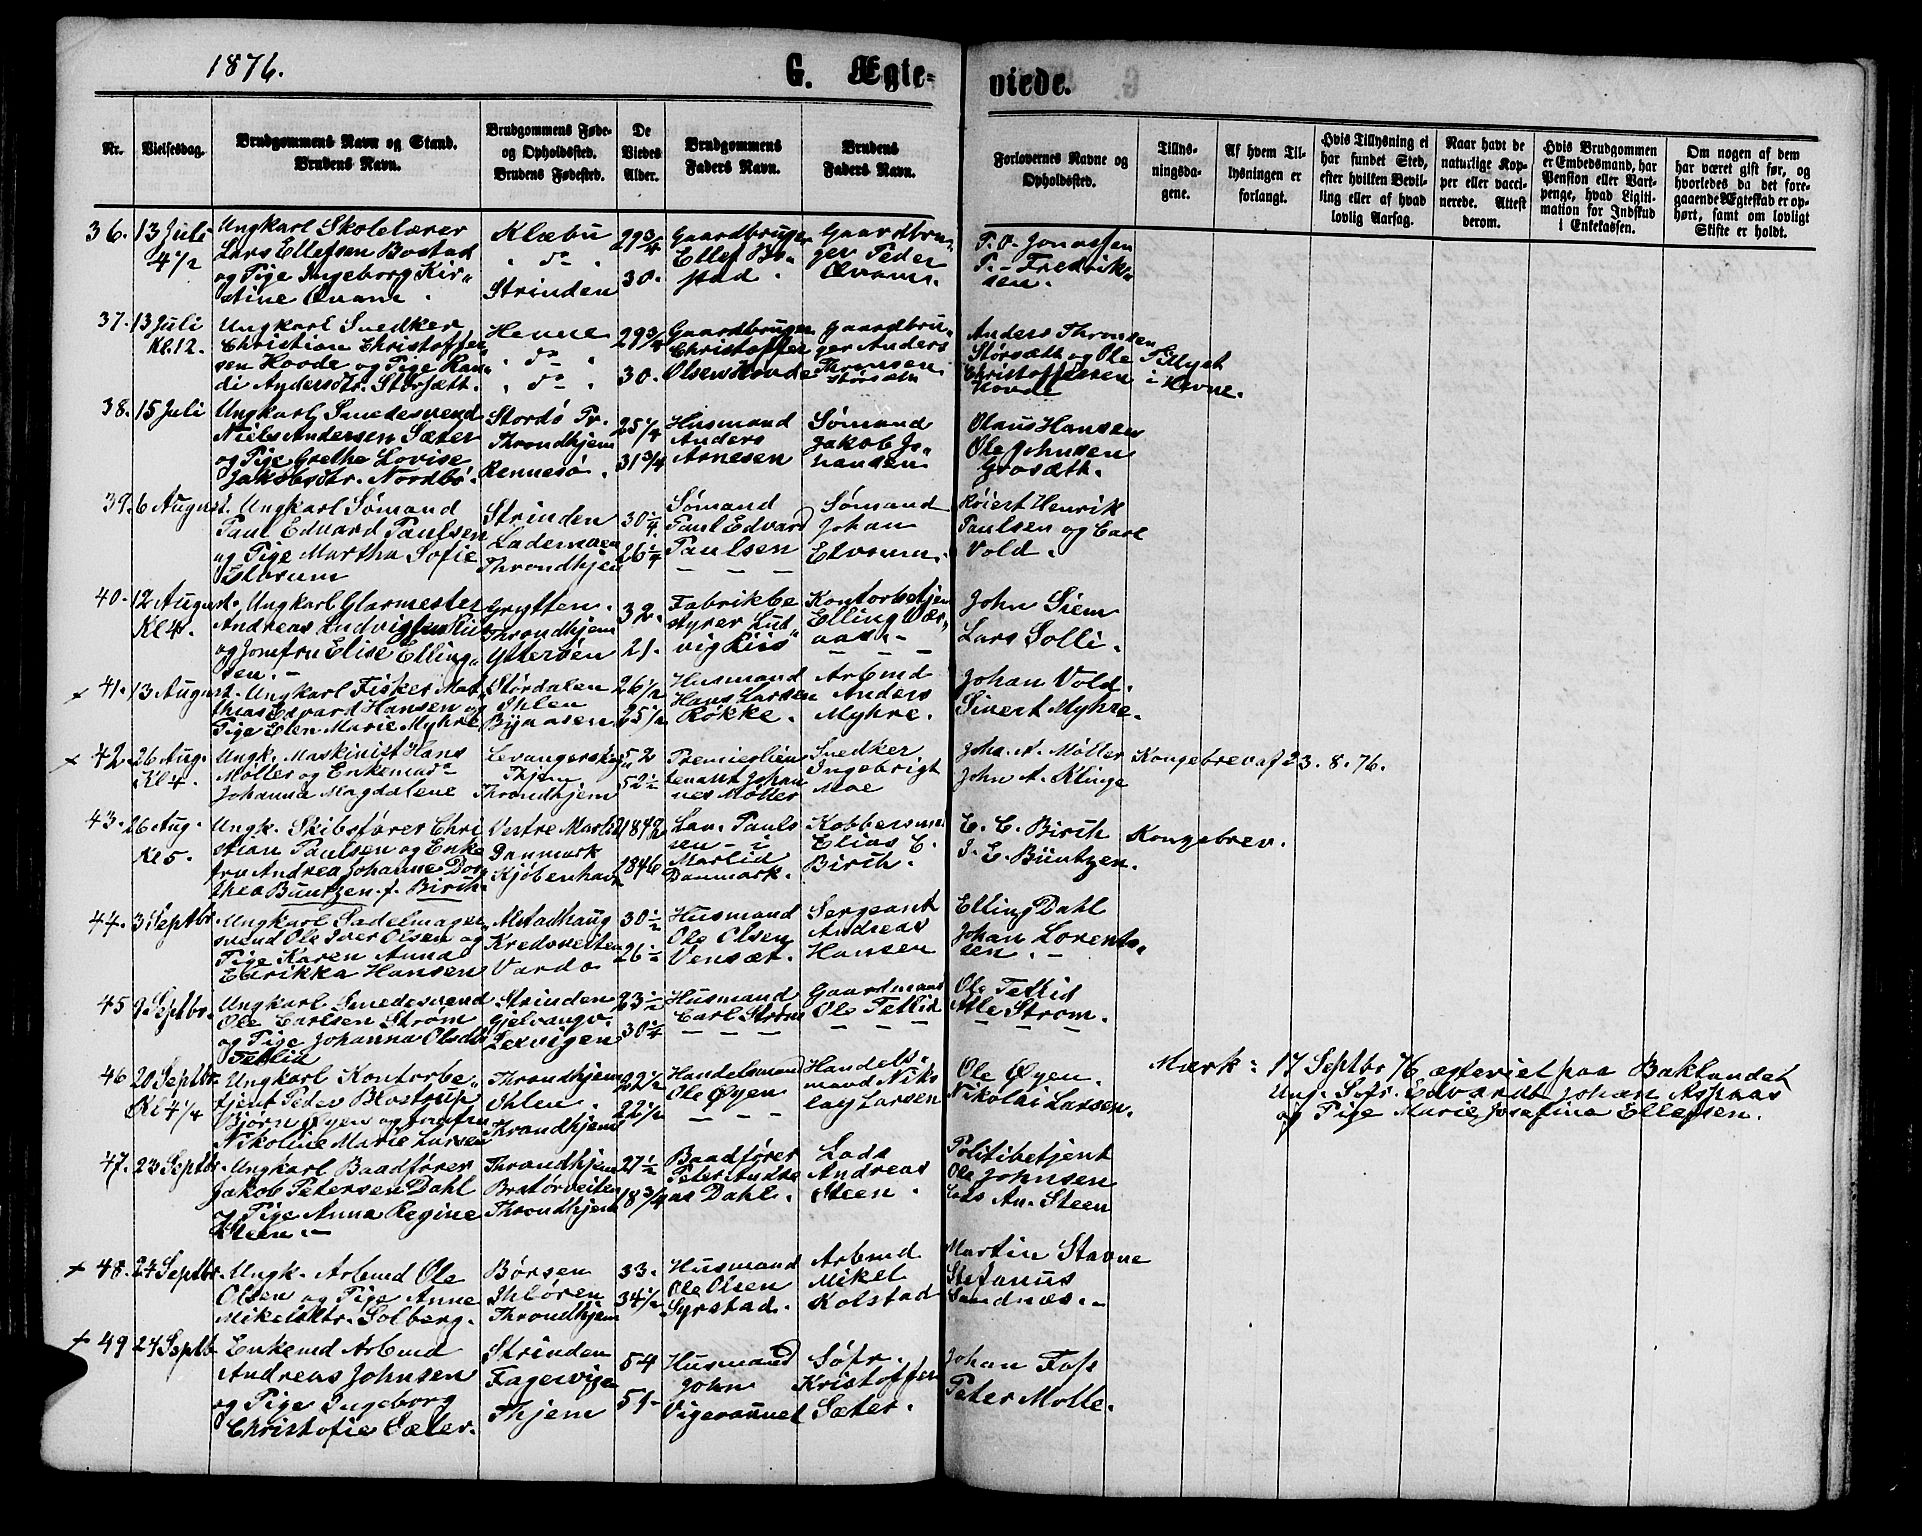 1876.
G. Ægte-
viede.
Nr.
Vielsesdag.
Brudgommens Navn og Stand.
Brudens Navn.
Brudgommens Føde-
og Opholdssted.
Brudens Fødested.
De
Viedes
Alder.
Brudgommens
Faders Navn.
Brudens
Faders Navn.
Forlovernes Navne og
Opholdssted.
Tillys-
ningsda-
gene.
Af hvem Til-
lysningen er
forlangt.
Hvis Tillysning ei
har fundet Sted,
efter hvilken Bevil-
ling eller af hvad
lovlig Aarsag.
Naar havt de
naturlige Kop-
per eller vacci-
nerede. Attest
derom.
Hvis Brudgommen
er Embedsmand, har
Pension eller Vart-
penge, hvad Ligiti-
mation for Indskud
i Enkekassen.
Om nogen af dem
har været gift før, og
hvorledes da det fore-
gaaende Ægteskab er op-
hørt, samt om lovligt
Skifte er holdt.
36. 13 Juli
4 1/2
Ungkarl Skolelærer
Lars Ellefsen Bostad
og Pige Ingeborg Kir-
stine Qvam
Klæbu
" do "
Strinden
29 3/4
30.
Gaardbruger
Ellef Bo-
stad
Gaardbru-
ger Peder
Qvam.
P. O. Jonassen
P. - Fredrik-
sen.
37. 13 Juli
Kl. 12.
Ungkarl Snedker
Christian Christoffer-
sen Hovde og Pige Ran-
di Andersdtr. Storsætt.
Hevne
" do "
" do "
29 3/4
30.
Gaardbruger
Christoffer
Olsen Hovde
Gaardbru-
ger Anders
Thronsen
Storsæth
Anders Thronsen
Størsæth og Ole
Christoffersen
Hovde
Tillyst
i Hevne.
38. 15 Juli
Ungkarl Smedesvend
Niels Andersen Sæter
og Pige Grethe Lovise
Jakobsdtr. Nordbø.
Stordø Pr.
Throndhjem
Rennesø.
25 1/4
31 3/4
Husmand
Anders
Arnesen
Sømand
Jakob Jo-
hansen
Olaus Hansen
Ole Johnsen
Grosæth.
39. 6 August.
Ungkarl Sømand
Paul Edvard Paulsen
og Pige Martha Sofie
Elvrum
Strinden
Lademoen
Throndhjem
30 1/4
26 1/4
Sømand
Paul Edvard
Paulsen
Sømand
Johan
Elvrum.
Roiert Henrik
Paulsen og Carl
Vold.
40. 12 August.
Kl 4.
Ungkarl Glarmester
Andreas Ludvigsen Riis
og Jomfru Elise Elling-
sen.
Grytten.
Throndhjem
Ytterøen
32.
21.
Fabrikbe
styrer Lud-
vig Riis
Kontorbetjen
Elling Vær-
aas.
John Siem
Lars Solli.
+ 41. 13 August.
Ungkarl Fisker Mat-
thias Edvard Hansen og
Pige Elen Marie Myhre
Størdalen
Ihlen
Bynæsen
26 1/2
25 1/2
Husmand
Hans Larsen
Røkke.
Arbmd
Anders
Myhre.
Johan Vold.
Sivert Myhre.
+ 42. 26 Aug.
Kl 4.
Ungk. Maskinist Hans
Møller og Enkemad
Johanna Magdalene
Levangerskog
Thjem
Throndhjem
52
52 1/2
Premierlieu
tenant Johan
nes Møller
Snedker
Ingebrigt
Moe
Joh. N. Møller
John A. Klinge
Kongebrev af 23. 8. 76.
43. 26 Aug.
Kl 5.
Ungk. Skibsfører Chri
stian Paulsen og Enke
fru Andrea Johanne Dor
thea Büntzen f. Birch
Vestre Marlid
Danmark
Kjøbenhavn
1842
1846
Lau. Pauls
sen - i
Marlid
Danmark.
Kobbersm
Elias C.
Birch.
E. C. Birch
J. E. Büntzen.
Kongebrev.
44. 3 Septbr.
Ungkarl Sadelmager
svend Ole Iver Olsen og
Pige Karen Anna
Enrikka Hansen
Alstadhaug
Kredsveiten
Vardø
30 1/2
26 1/2
Husmand
Ole Olsen
Vensæt.
Sergeant
Andreas
Hansen
Elling Dahl
Johan Lorents-
sen.
45 9 Septbr.
Ungkarl Smedesvend
Ole Carlsen Strøm
og Pige Johanna Olsdtr
Tetlid
Strinden
Gjelvangv.
Lexvigen
23 1/2
30 1/4
Husmand
Carl Strøm
Gaardmand
Ole Tetlid
Ole Tetlid
Atle Strøm.
46 20 Septbr.
Kl 4 1/4
Ungkarl Kontorbe-
tjent Peder Blostrup
Bjørn Øyen og Jomfru
Nikoline Marie Larsen
Throndhjem
Ihlen.
Throndhjem
22 1/2
22 1/2
Handelsmand
Ole Øyen
Handels-
mand Niko
lay Larsen
Ole Øyen.
Nikolai Larsen.
Mærk: 17 Septbr 76 ægteviet paa Baklandet
Ung. Sofr. Edvardt Johan Aspaas
og Pige Marie Josafina Ellefsen.
47. 23 Septbr.
Ungkarl Baadfører
Jakob Petersen Dahl
og Pige Anna Regine
Steen.
Throndhjem
Bratørveiten
Throndhjem
27 1/2
18 3/4
Baadfører
Peter Andre
as Dahl.
Lods
Andreas
Steen.
Politibetjent
Ole Johnsen
Lds An. Steen
+ 48. 24 Septbr.
Ungk. Arbmd Ole
Olsen og Pige Anne
Mikelsdtr. Solberg.
Børsen
Ihløren
Throndhjem
33.
34 1/2
Husmand
Ole Olsen
Syrstad.
Arbmd
Mikel
Kolstad
Martin Stavne
Stefanus
Sandnæs.
+ 49 24 Septb
Enkemd Arbmd
Andreas Johnsen
og Pige Ingeborg
Christofie Sæter.
Strinden
Fagervigen
Thjem
54
51
Husmand
John
Vigevannet
Søfr.
Kristoffer
Sæter.
Johan Foss
Peter Molle.